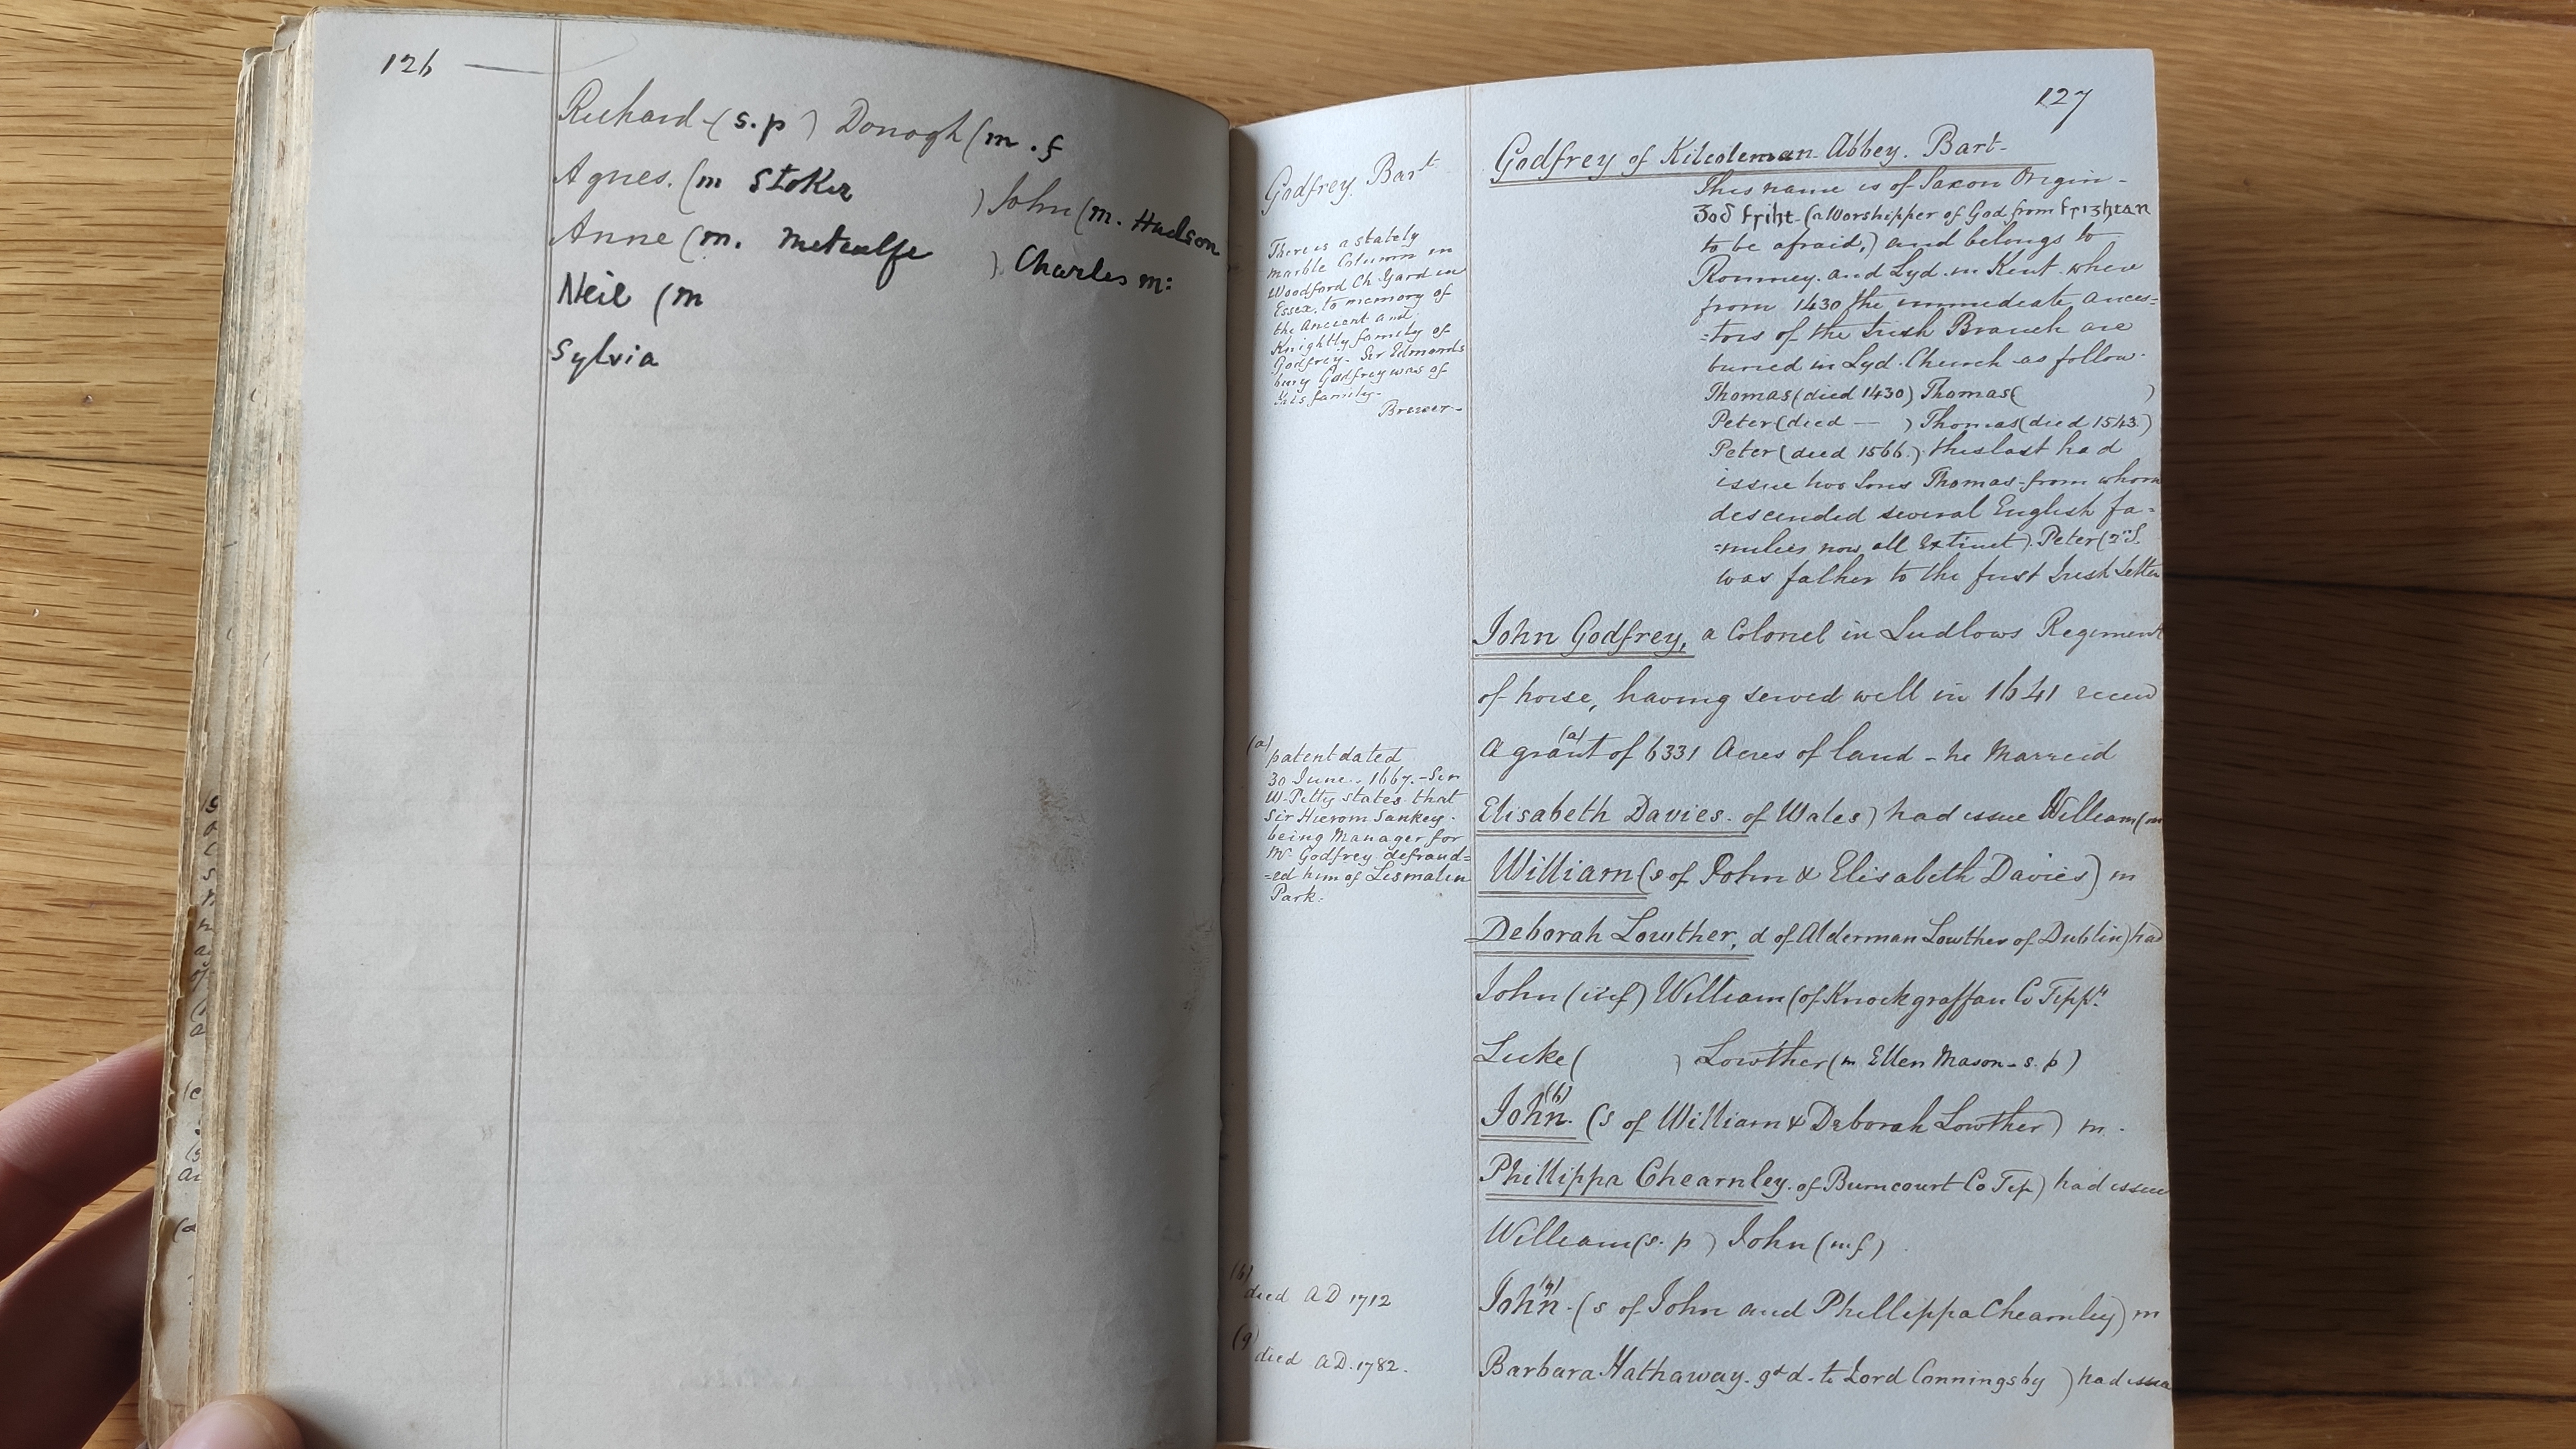 126
Richard (s.p) Donogh (m.f
Agnes. (m Stoker ) John (m. Hudson
Anne (m. Metcalfe ) Charles m:
Neil (m
Sylvia
127
Godfrey Bart
There is a stately
marble Column in
Woodford Ch Yard in
Essex, to memory of
the Ancient and
Knightly family of
Godfrey - Sir Edmonds
bury Godfrey was of
this family -
Brewer -
(a)
patent dated
30 June. 1667. - Sir
W. Petty states that
Sir Hierom Sankey -
being Manager for
Mr Godfrey defraud=
=ed him of Lismalin
Park:
(b)
died AD 1712
(g)
died AD. 1782.
Godfrey of Kilcoleman Abbey. Bart-
This name is of Saxon Origin -
Ᵹod Friht - (a Worshipper of God from
to be afraid,) and belongs to
Romney. and Lyd. in Kent. where
from 1430 the immediate ances=
=tors of the Irish Branch are
buried in Lyd. Church as follow.
Thomas (died 1430) Thomas ( )
Peter (died — ) Thomas (died 1543.)
Peter (died 1566.) this last had
issue two sons Thomas - from whom
descended several English fa=
=milies now all Extinct). Peter (2nd S.
was father to the first Irish Settler
John Godfrey, a Colonel in Ludlows Regiment
of horse, having served well in 1641
A grant (a) of 6331 Acres of land - he Marreid
Elisabeth Davies. of Wales) had issue William (m
William (s of John & Elisabeth Davies) m
Deborah Lowther, d of Alderman Lowther of Dublin) had
John (inf) William (of Knockgraffan Co Tippy
Luke ( ) Lowther (m Ellen Mason - s. p)
John. (b) (s of William & Deborah Lowther) m.
Phillippa Chearnley. of Burncourt Co Tip) had issue
William (s. p) John (m.f)
John (g) - (s of John and Phillippa Chearnley) m
Barbara Hathaway. gd d. to Lord Conningsby ) had issue